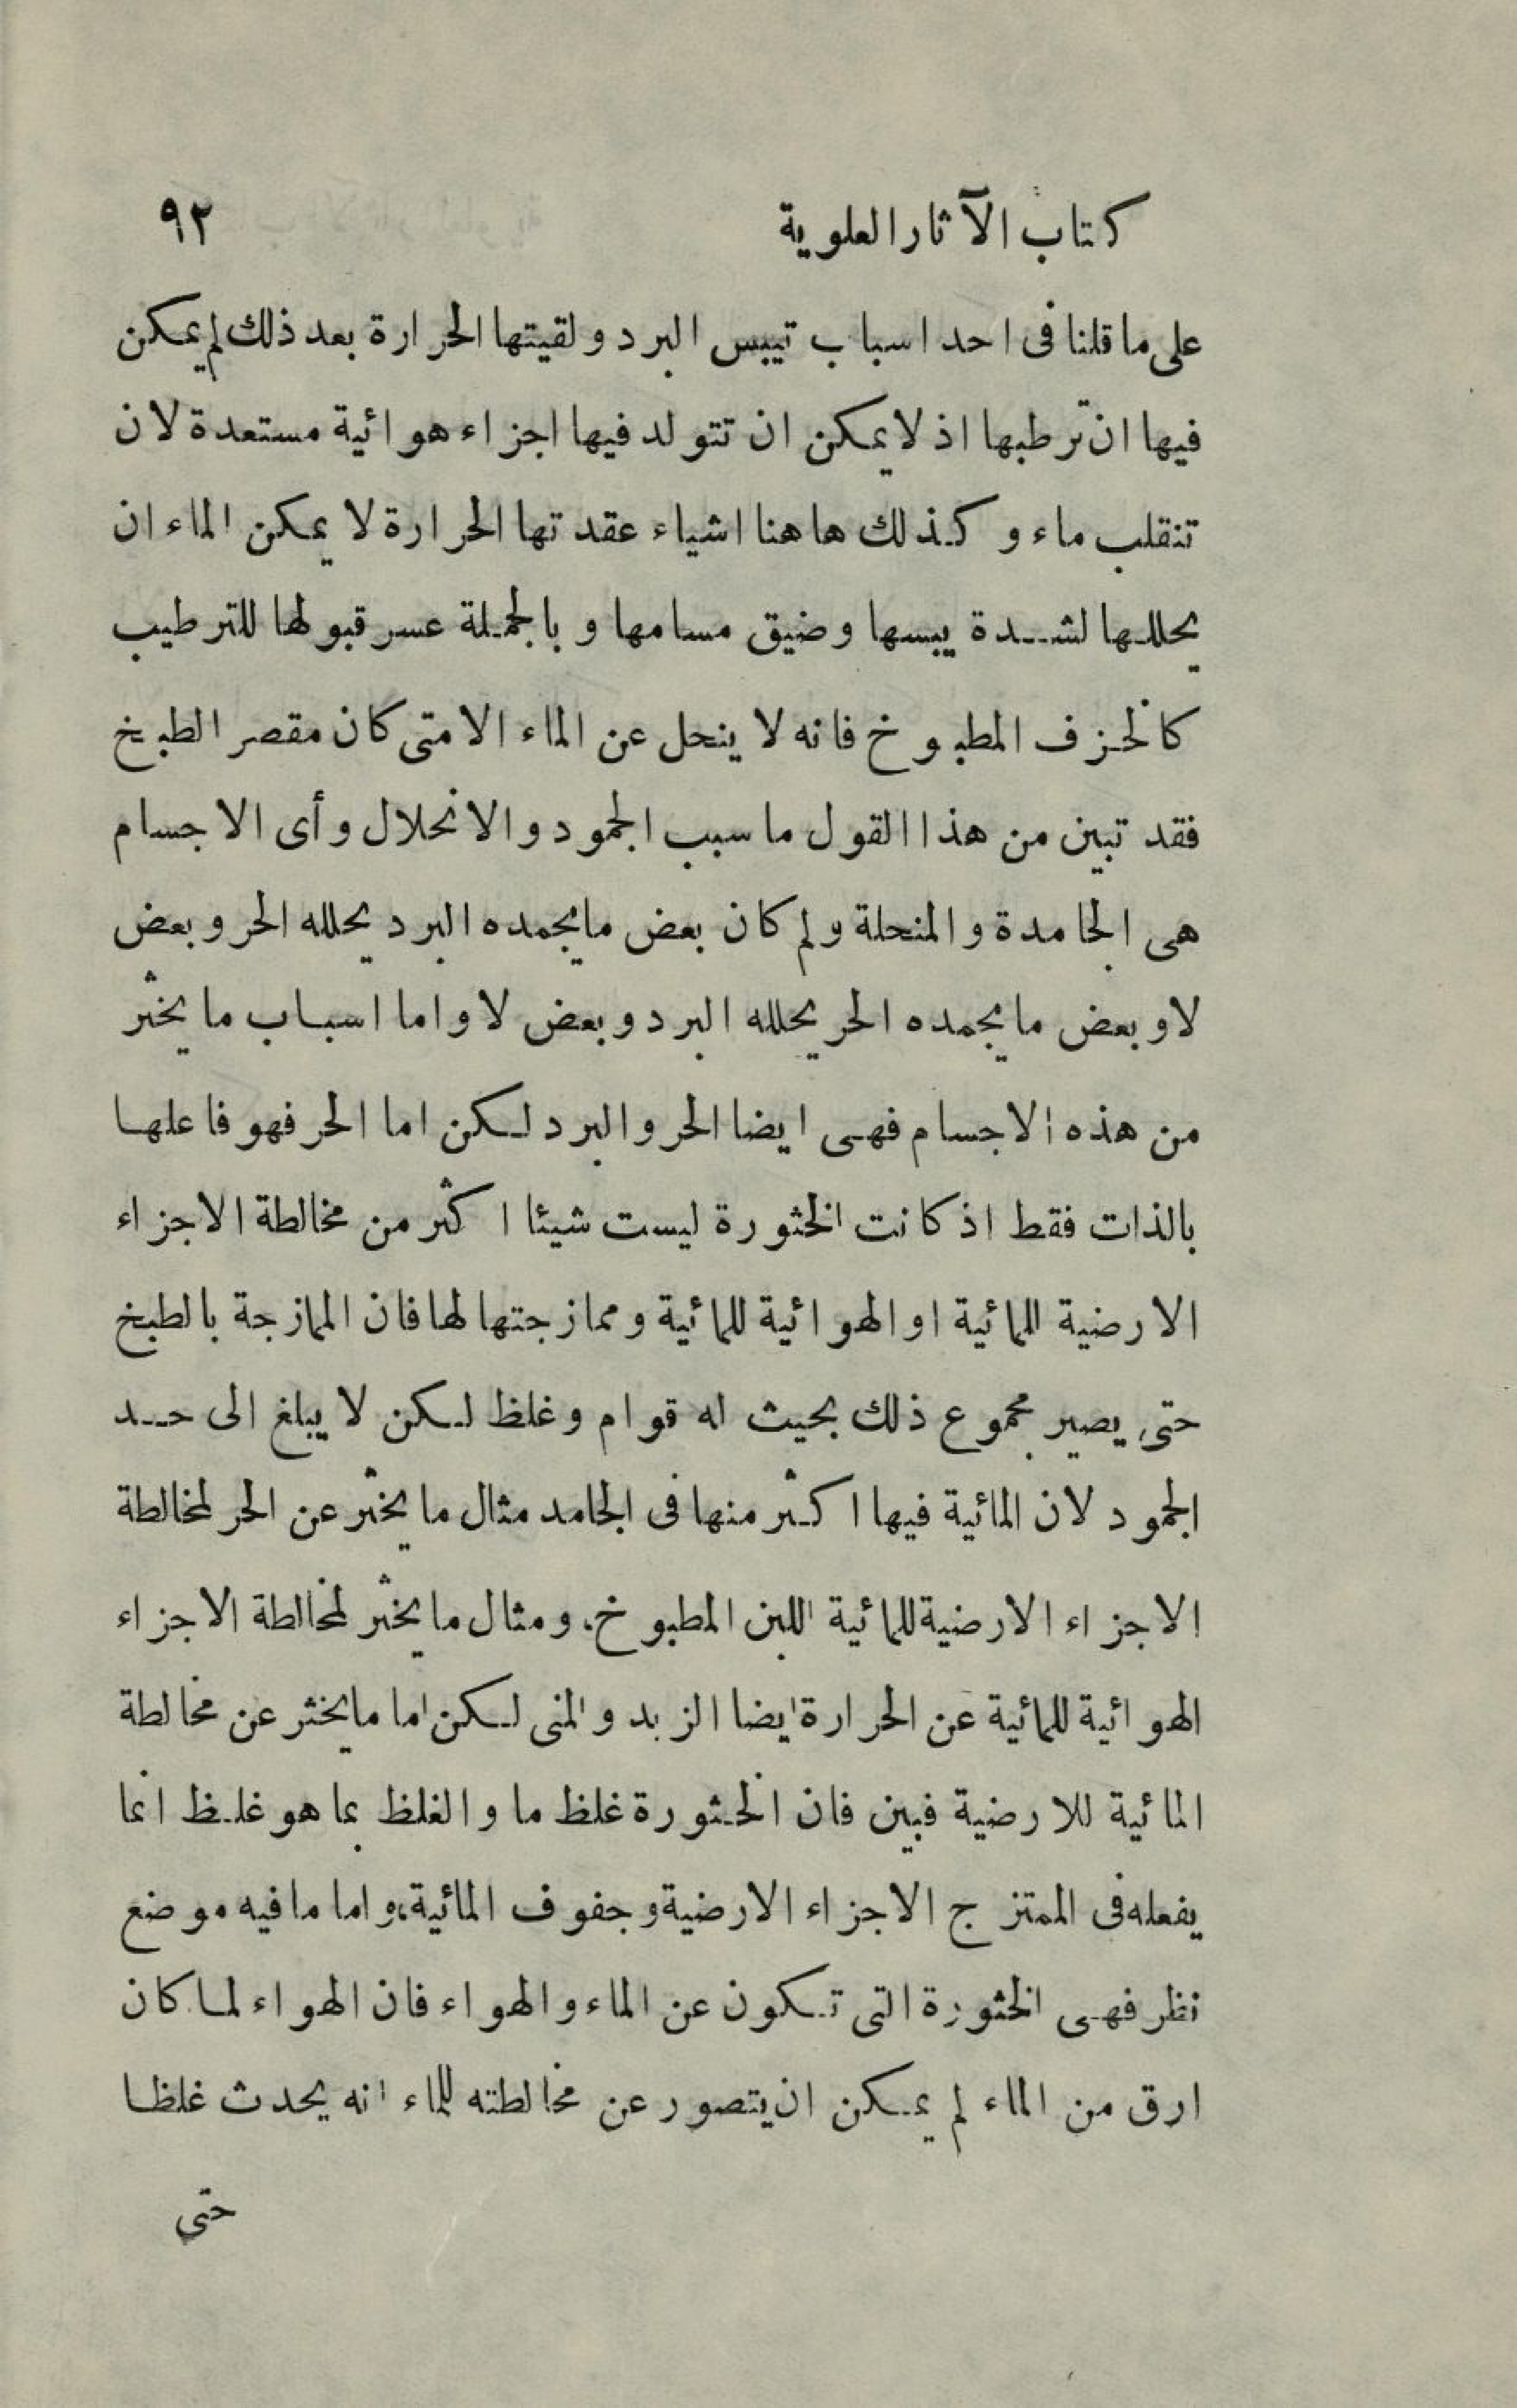 كتاب الآثار العلوية ٩٢
على ما قلنا فى احد اسباب تيبس البرد ولقيتها الحرارة بعد ذلك لم يمكن
فيها ان ترطبها اذ لا يمكن ان تتولد فيها اجزاء هوائية مستعدة لان
تنقلب ماء وكذلك ها هنا اشياء عقدتها الحرارة لا يمكن الماء ان
يحللها لشدة يبسها وضيق مسامها وبالجملة عسر قبولها للترطيب
كالخزف المطبوخ فانه لا ينحل عن الماء الا متى كان مقصر الطبخ
فقد تبين من هذا القول ما سبب الجمود والانحلال وأى الاجسام
هى الجامدة والمنحلة ولم كان بعض ما يجمده البرد يحلله الحر وبعض
لا وبعض ما يجمده الحر يحلله البرد وبعض لا واما اسباب ما يخثر
من هذه الاجسام فهى ايضا الحر والبرد لكن اما الحر فهو فاعلها
بالذات فقط اذ كانت الخثورة ليست شيئا اكثر من مخالطة الاجزاء
الارضية المائية او الهوائية للمائية وممازجتها لها فان الممازجة بالطبخ
حتى يصير مجموع ذلك بحيث له قوام وغلظ لكن لا يبلغ الى حد
الجمود لان المائية فيها اكثر منها فى الجامد مثال ما يخثر عن الحر لمخالطة
الاجزاء الارضية للمائية اللبن المطبوخ، ومثال ما يخثر لمخاالطة الاجزاء
الهوائية للمائية عن الحرارة ايضا الزبد والمنى لكن اما ما يخثر عن مخالطة
المائية للارضية فبين فان الخثورة غلظ ما والغلظ بما هو غلظ انما
يفعله فى الممتزج الاجزاء الارضية وجفوف المائية، واما ما فيه موضع
نظر فهى الخثورة التى تكون عن الماء والهواء فان الهواء لما كان
ارق من الماء لم يمكن ان يتصور عن مخالطته للماء انه يحدث غلظا
حتى